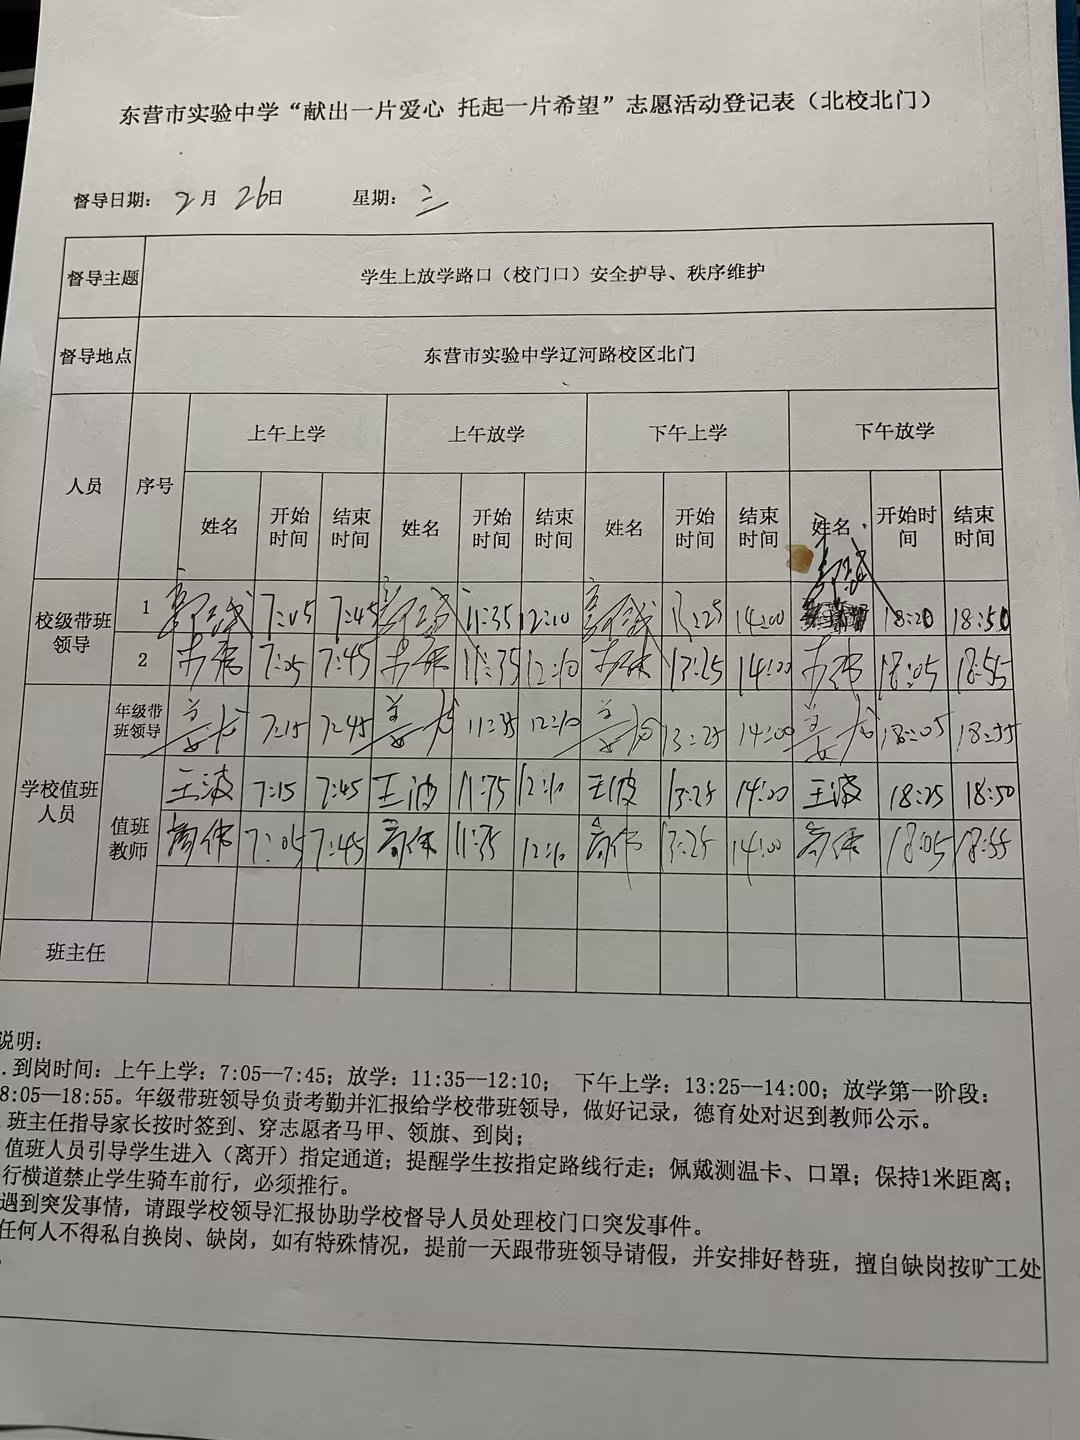 东营市实验中学“献出一片爱心 托起一片希望”志愿活动登记表（北校北门）
督导日期： 2月 26日 星期：三
督导主题 学生上放学路口（校门口）安全护导、秩序维护
督导地点 东营市实验中学辽河路校区北门
人员 序号 上午上学 上午放学 下午上学 下午放学
姓名 开始时间 结束时间 姓名 开始时间 结束时间 姓名 开始时间 结束时间 姓名 开始时间 结束时间
校级带班领导 1 7:05 7:45 11:35 12:10 13:25 14:00 18:20 18:50
2 7:05 7:45 11:35 12:10 13:25 14:00 18:05 18:55
学校值班人员 年级带班领导 7:15 7:45 11:35 12:10 13:25 14:00 18:05 18:55
值班教师 王波 7:15 7:45 王波 11:35 12:10 王波 13:25 14:00 王波 18:25 18:50
7:05 7:45 11:35 12:10 13:25 14:00 18:05 18:55
班主任
说明：
.到岗时间：上午上学：7:05--7:45；放学：11:35--12:10； 下午上学：13:25--14:00；放学第一阶段：
8:05--18:55。年级带班领导负责考勤并汇报给学校带班领导，做好记录，德育处对迟到教师公示。
班主任指导家长按时签到、穿志愿者马甲、领旗、到岗；
值班人员引导学生进入（离开）指定通道；提醒学生按指定路线行走；佩戴测温卡、口罩；保持1米距离；
行横道禁止学生骑车前行，必须推行。
遇到突发事情，请跟学校领导汇报协助学校督导人员处理校门口突发事件。
任何人不得私自换岗、缺岗，如有特殊情况，提前一天跟带班领导请假，并安排好替班，擅自缺岗按旷工处